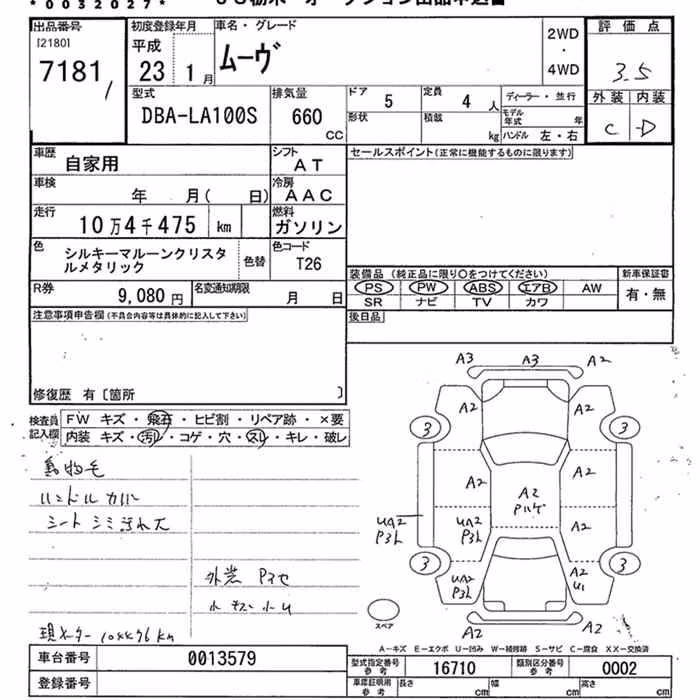 *0032027*
出品番号
[2180]
7181
初度登録年月
平成
23 1月
車名・グレード
ムーヴ
2WD
・
4WD
評価点
3.5
外装 内装
C D
型式
DBA-LA100S
排気量
660
CC
ドア 5
定員 4人
形状
積載 kg
ディーラー・並行
モデル年式 年
ハンドル 左・右
車歴
自家用
シフト
AT
車検
年 月( 日)
冷房
AAC
走行
10万4千475 km
燃料
ガソリン
色
シルキーマルーンクリスタ
ルメタリック
色替
色コード
T26
R券
9,080円
名変通知期限
月 日
セールスポイント(正常に機能するものに限ります)
装備品 (純正品に限り○をつけてください)
PS PW ABS エアB AW
SR ナビ TV カワ
新車保証書
有・無
後日品
注意事項申告欄(不具合内容等は具体的に記入して下さい)
修復歴 有〔箇所 〕
検査員
記入欄
FW キズ・飛石・ヒビ割・リペア跡・×要
内装 キズ・汚レ・コゲ・穴・スレ・キレ・破レ
動物毛
ハンドルカバー
シートシミ汚れ大
外装 Pヌセ
小キズ小U
現メーター 104476km
A3 A3 A2
A2 A2
3 3
A2 A2
A2
Pハゲ
UA2
P3L
UA2
P3L
A2
3 3
UA2
P3L
A2
U1
A2 A2
スペア
A-キズ E-エクボ U-凹み W-補修跡 S-サビ C-腐食 XX-交換済
車台番号
0013579
登録番号
型式指定番号
参考
16710
類別区分番号
参考
0002
車庫証明用
参考
長さ cm
幅 cm
高さ cm